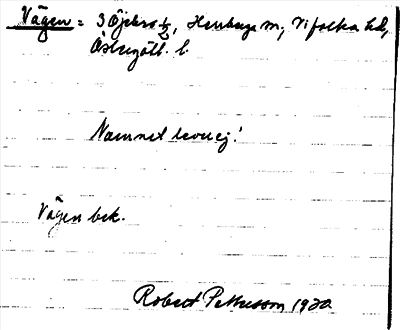 Vägen = 3 Öjebro ½, Herrberga sn, Vifolka hd,
Östergötl. l.
Namnet lever ej!
Vägen bek.
Robert Pettersson 1920